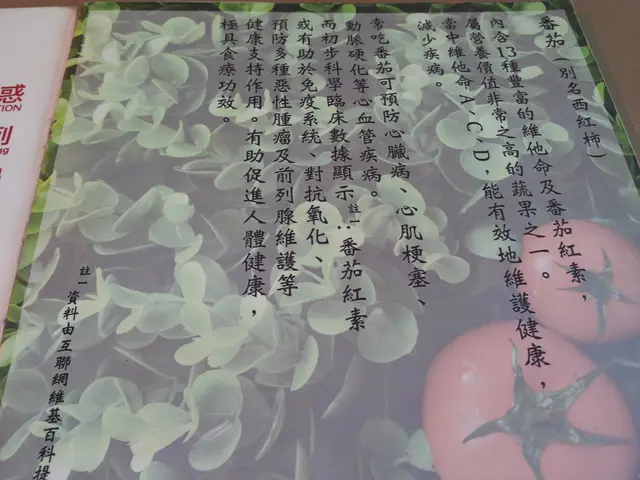 番茄（別名西紅柿）
內含13種豐富的維他命及番茄紅素，
屬營養價值非常之高的蔬果之一。
當中維他命A、C、D，能有效地維護健康，
減少疾病。
常吃番茄可預防心臟病、心肌梗塞、
動脈硬化等心血管疾病。
而初步科學臨床數據顯示註一：番茄紅素
或有助於免疫系統、對抗氧化、
預防多種惡性腫瘤及前列腺維護等
健康支持作用。有助促進人體健康，
極具食療功效。
註一 資料由互聯網維基百科提
惑
TION
列